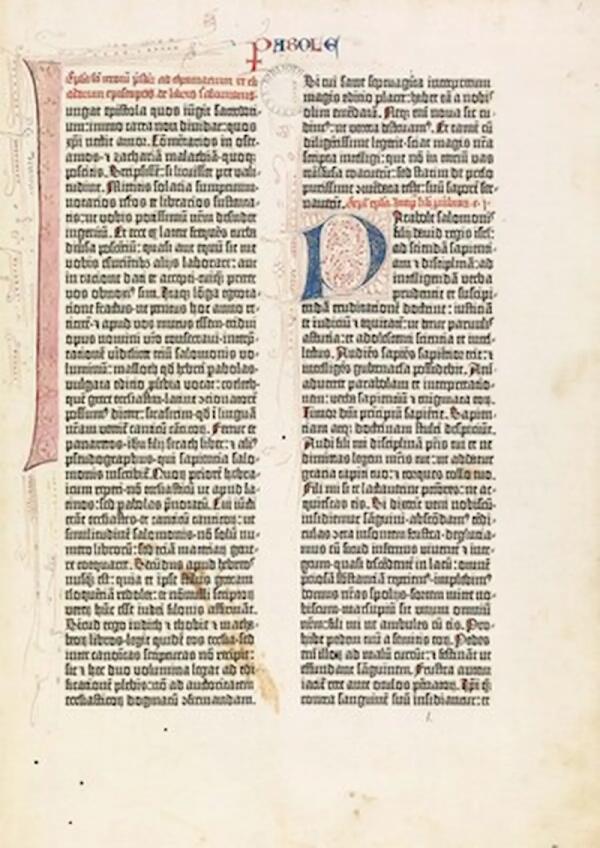 PABOLE
Iungat epistola quos iūgit sacerdoti-
um: immo carta non diuidat: quos
xp̄i nectit amor. Cōmētarios in osee-
amos-⁊ zachariā malachiā-quoq;
poscitis. Scripsissē: si licuisset pre vali-
tudine. Mittitis solacia sumptuum-
notarios nr̄os et librarios sustenta-
tis: ut vobis potissimū nr̄m desudet
ingeniū. Et ecce ex latere frequēs turba
diuersa poscētiū: quasi aut equū sit me
vobis esurientib; alijs laborare: aut
in ratione dati et accepti-cuiq; preter
vos obnoxi9 sim. Itaq; lōga egrota-
tione fractus-ne penitus hoc anno re-
ticerē-⁊ apud vos mutus essem-tridui
opus nomini vr̄o consecraui-interp̄-
tationē videlicet triū salomonis vo-
luminū: masloth qd̄ hebrei pabolas-
vulgata editio p̄ubia vocat: coeleth-
que grece ecclesiasten-latine ɔcionatorē
possum9 dicere: sirasirim-qd̄ ī linguā
nr̄am vertit̄ canticū cāticoꝝ. Fertur et
panaretos-ihu filij sirach liber: ⁊ ali9
pseudographus-qui sapientia salo-
monis inscribit̄. Quoꝝ priorē hebra-
icum reperi-nō ecclīasticū ut apud la-
tinos: sed pabolas p̄notatū. Cui iūcti
erāt ecclesiastes-et canticū canticoꝝ: ut
similitudinē salomonis-nō solū nu-
mero libroꝝ: sed etiā materiaꝝ gene-
re coequaret. Secūdus apud hebreos
nusq̄ est: quia et ipse stilus grecam
eloquentiā redolet: et nōnulli scriptoꝝ
veteꝝ hūc esse iudei filonis affirmāt.
Sicud ergo iudith ⁊ thobie ⁊ macha-
beoꝝ libros-legit quidē eos ecclesia-sed
inter canōicas scripturas nō recipit:
sic ⁊ hec duo volumina legat ad edi-
ficationē plebis: nō ad auctoritatem
ecclesiasticoꝝ dogmatū ɔfirmandam.
Si cui sane septuaginta interpretum
magis editio placet: habet eā a nobis
olim emēdatā. Neq; eni noua sic cu-
dim9: ut vetera destruam9. Et tamē cū
diligētissime legerit-sciat magis nr̄a
scripta intelligi: que non in tertiū vas
transfusa coacuerit: sed statim de prelo
purissime ɔmēdata teste: suū saporē ser-
uauerit.
Parabole salomonis
filij dauid regis isrl̄:
ad sciendā sapienti-
am ⁊ disciplinā: ad
intelligenda verba
prudentie et suscipi-
endā eruditationē doctrine: iusticiā
et iudiciū ⁊ equitatē: ut detur paruulis
astutia: et adolescenti scientia et intel-
lectus. Audiēs sapiēs sapiētior erit: ⁊
intelligēs gubernacla possidebit. Ani-
aduertet parabolam et interpretatio-
nem: verba sapientiū ⁊ enigmata eoꝝ.
Timor dn̄i principiū sapiētie. Sapien-
tiam atq; doctrinam stulti despiciūt.
Audi fili mi disciplinā pr̄is tui et ne
dimittas legem mr̄is tue: ut addatur
gracia capiti tuo: ⁊ torques collo tuo.
Fili mi si te lactauerint pctōres: ne ac-
quiescas eis. Si dixerit veni nobiscū-
insidiemur sāguini-abscōdam9 tēdi-
culas ɔtra insontem frustra-deglucia-
mus eū sicud infernus viuente ⁊ inte-
grum-quasi descēdētē in lacū: omnē
p̄ciosā sbstātiā reperiem9-implebim9
domos nr̄as spolijs-sortem mitte no-
biscum-marsupiū sit unum omniū
nr̄m: fili mi ne ambules cū eis. Pro-
hibe pedem tuū a semitis eoꝝ. Pedes
eni illoꝝ ad malū currūt: ⁊ festināt ut
effundant sāguinem. Frustra autem
iacit̄ rete ante oculos pēnatoꝝ. Ipi q̄;
contra sanguinē suū insidiantur: et